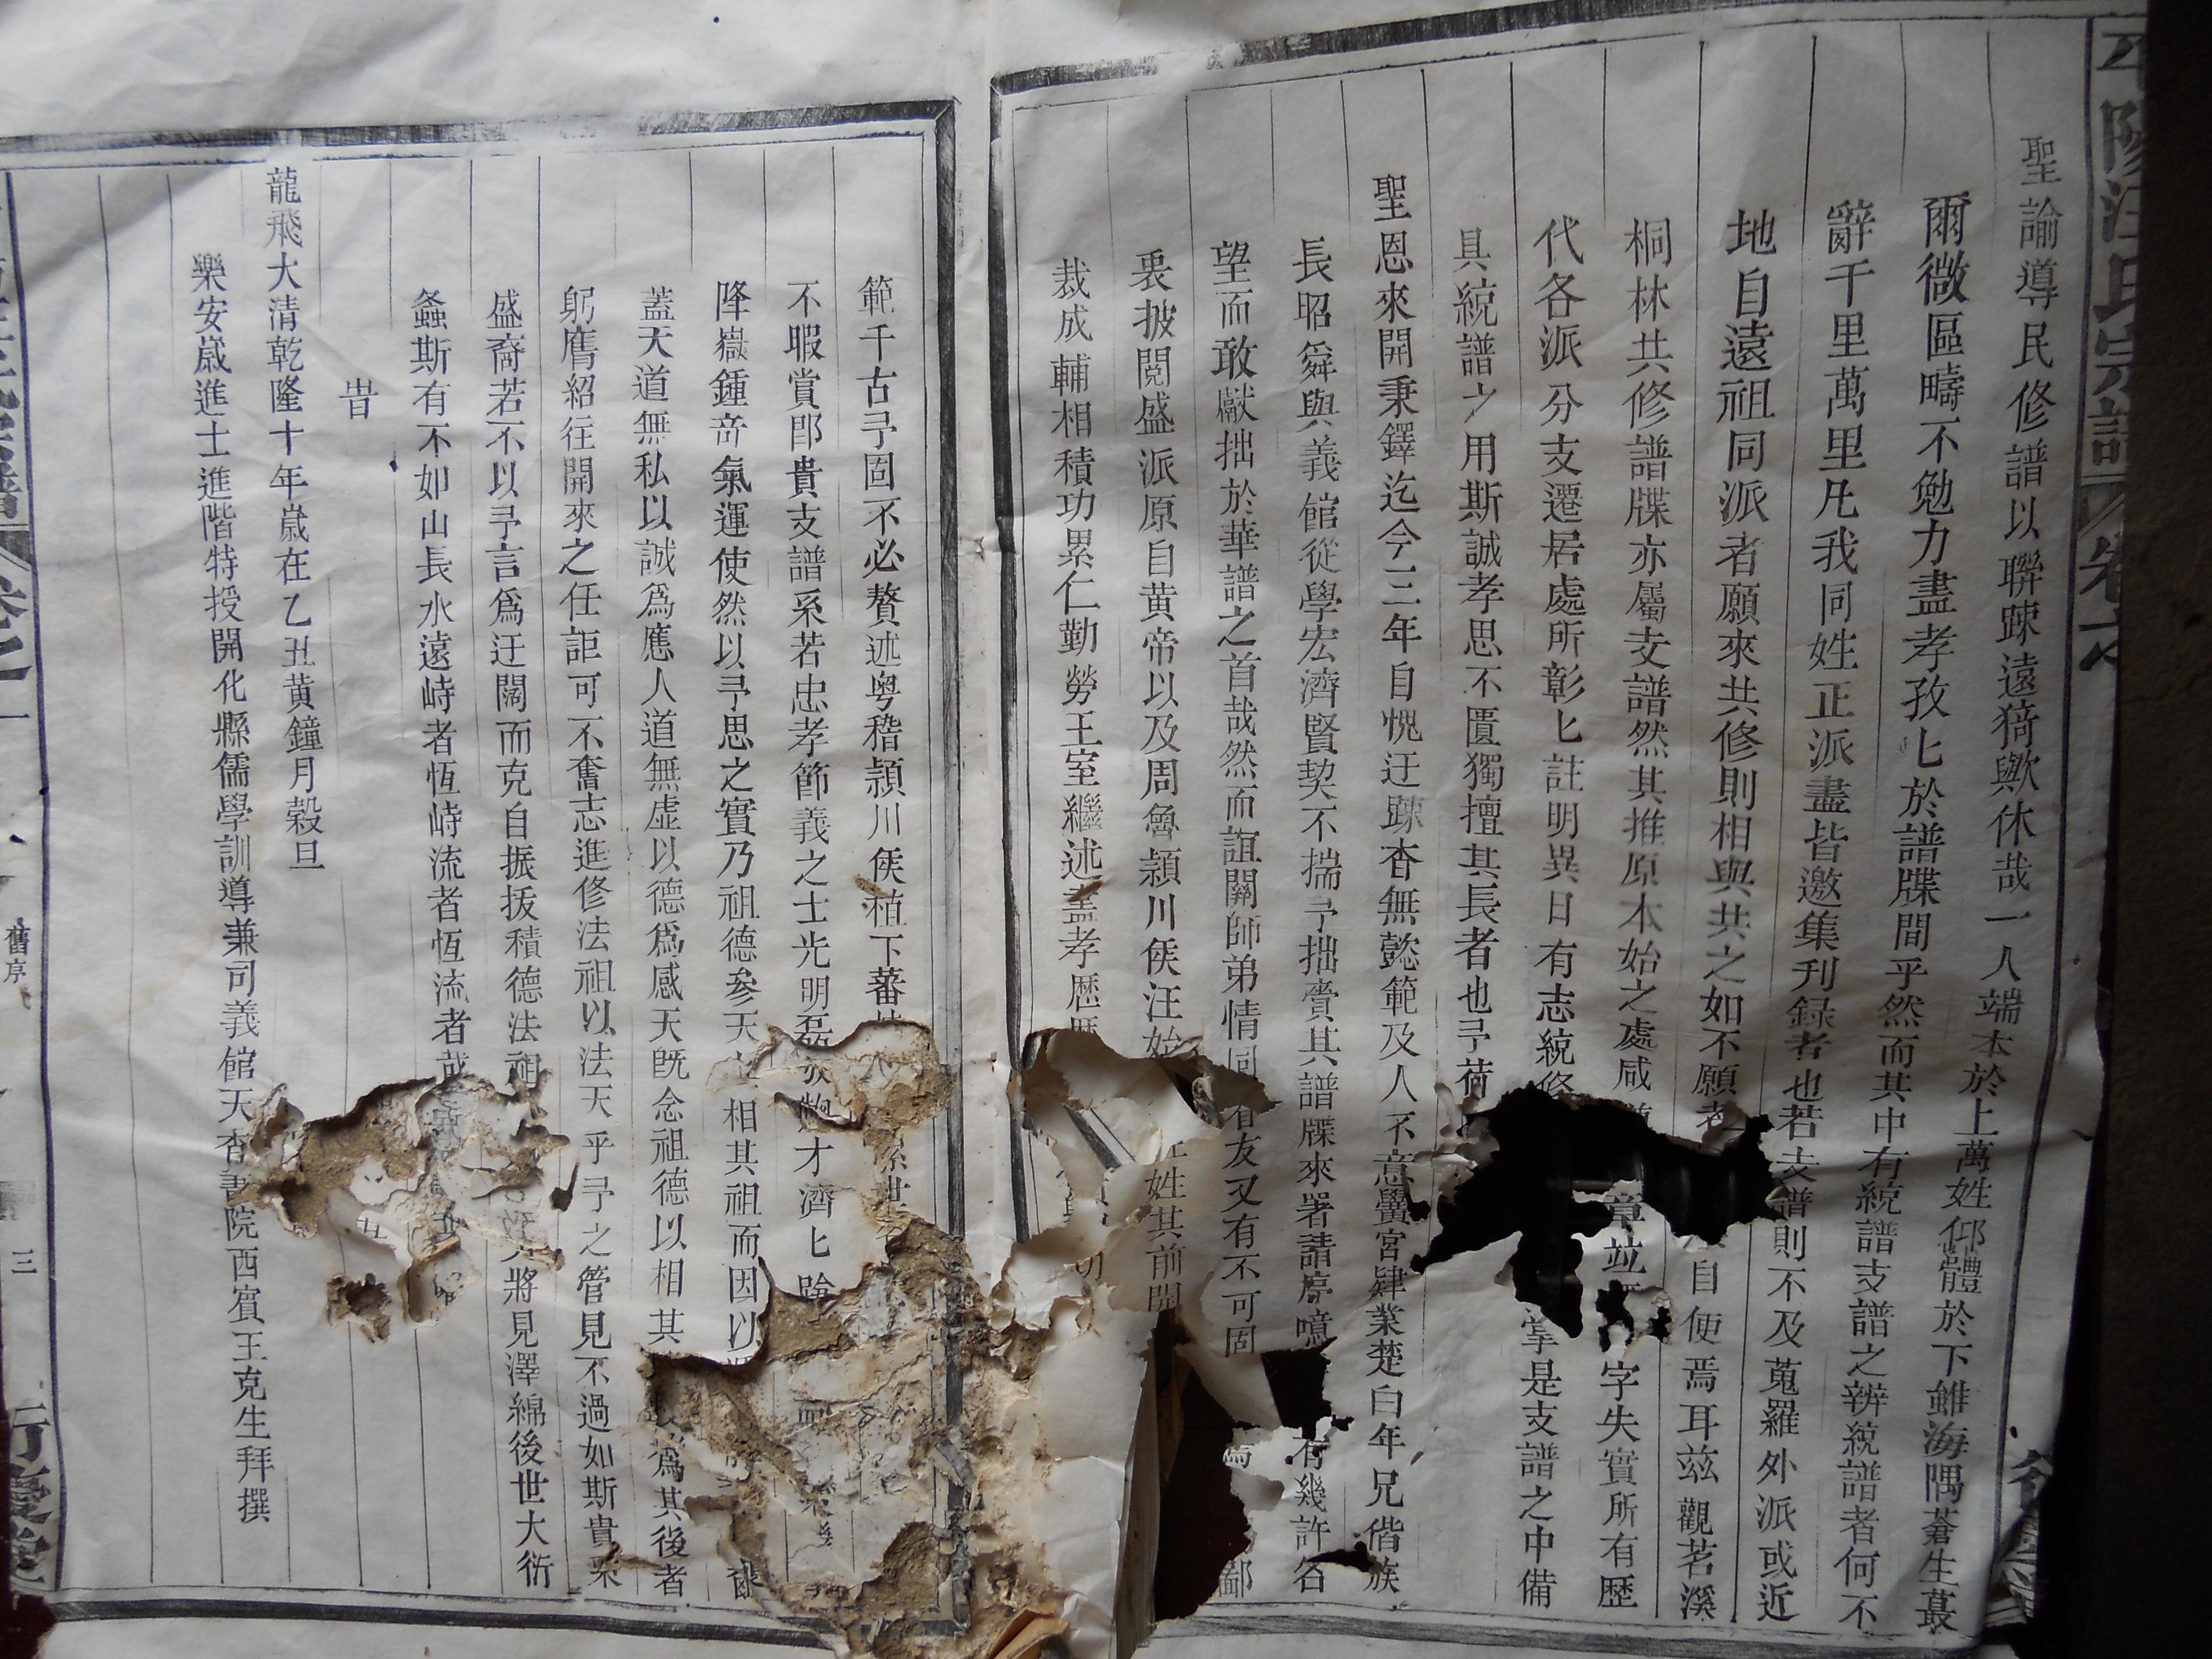 平陽汪氏宗譜 卷之
聖諭導民修譜以聯踈遠猗歟休哉一人端本於上萬姓仰體於下雖海隅蒼生蕞
爾微區疇不勉力盡孝孜匕於譜牒間乎然而其中有統譜支譜之辨統譜者何不
辭千里萬里凡我同姓正派盡皆邀集刊録者也若支譜則不及蒐羅外派或近
地自遠祖同派者願來共修則相與共之如不願者 自便焉耳兹觀茗溪
桐林共修譜牒亦屬支譜然其推原本始之處咸 章並 字失實所有歷
代各派分支遷居處所彰匕註明異日有志統修 掌是支譜之中備
具統譜之用斯誠孝思不匱獨擅其長者也予荷
聖恩來開秉鐸迄今三年自愧迂踈杳無懿範及人不意黌宮肄業楚白年兄偕族
長昭舜與義館從學宏濟賢契不揣予拙賫其譜牒來署請序噫 有幾許名
望而敢獻拙於華譜之首哉然而誼關師弟情同 友又有不可固 鄙
裏披閱盛派原自黄帝以及周魯潁川侯汪始 姓其前開
裁成輔相積功累仁勤勞王室繼述盡孝歷歷
範千古予固不必贅述粤稽潁川侯植下蕃
不暇賞即貴支譜系若忠孝節義之士光明磊 才濟匕
降嶽鍾奇氣運使然以予思之實乃祖德參天 相其祖而因以
蓋天道無私以誠爲應人道無虛以德爲感天旣念祖德以相其 爲其後者
躬膺紹往開來之任詎可不奮志進修法祖以法天乎予之管見不過如斯貴
盛裔若不以予言爲迂闊而克自振拔積德法祖 將見澤綿後世大衍
螽斯有不如山長水遠峙者恆峙流者恆流者哉
旹
龍飛大清乾隆十年歲在乙丑黄鐘月榖旦
樂安歲進士進階特授開化縣儒學訓導兼司義館天香書院西賓王克生拜撰
卷之一
舊序
三
衍慶堂